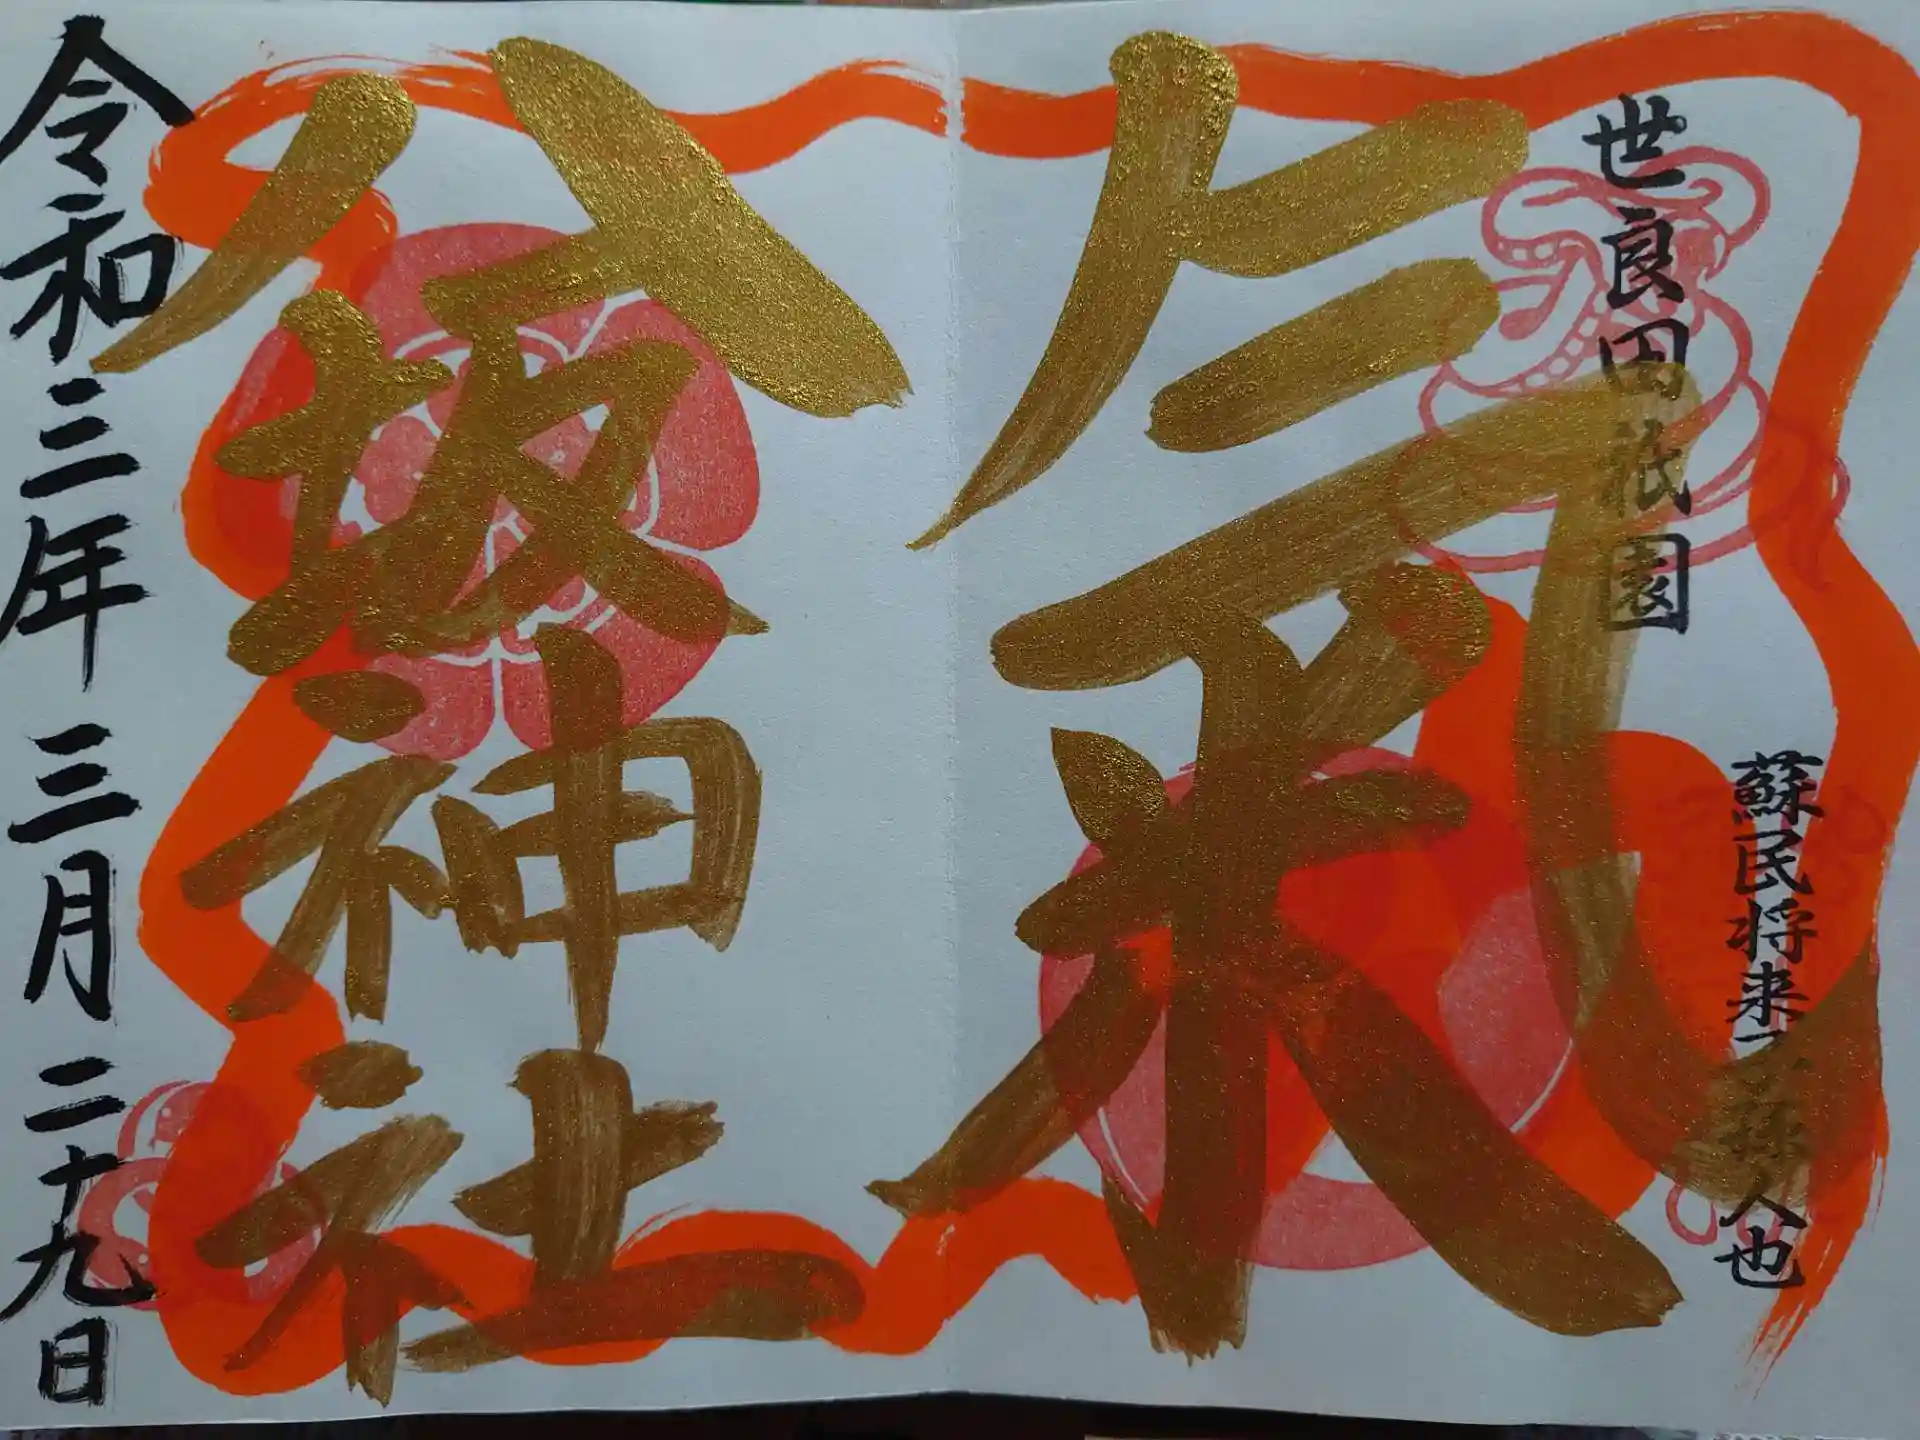 世良田祇園
蘇民将来子孫人也
氣
八坂神社
令和三年三月二十九日